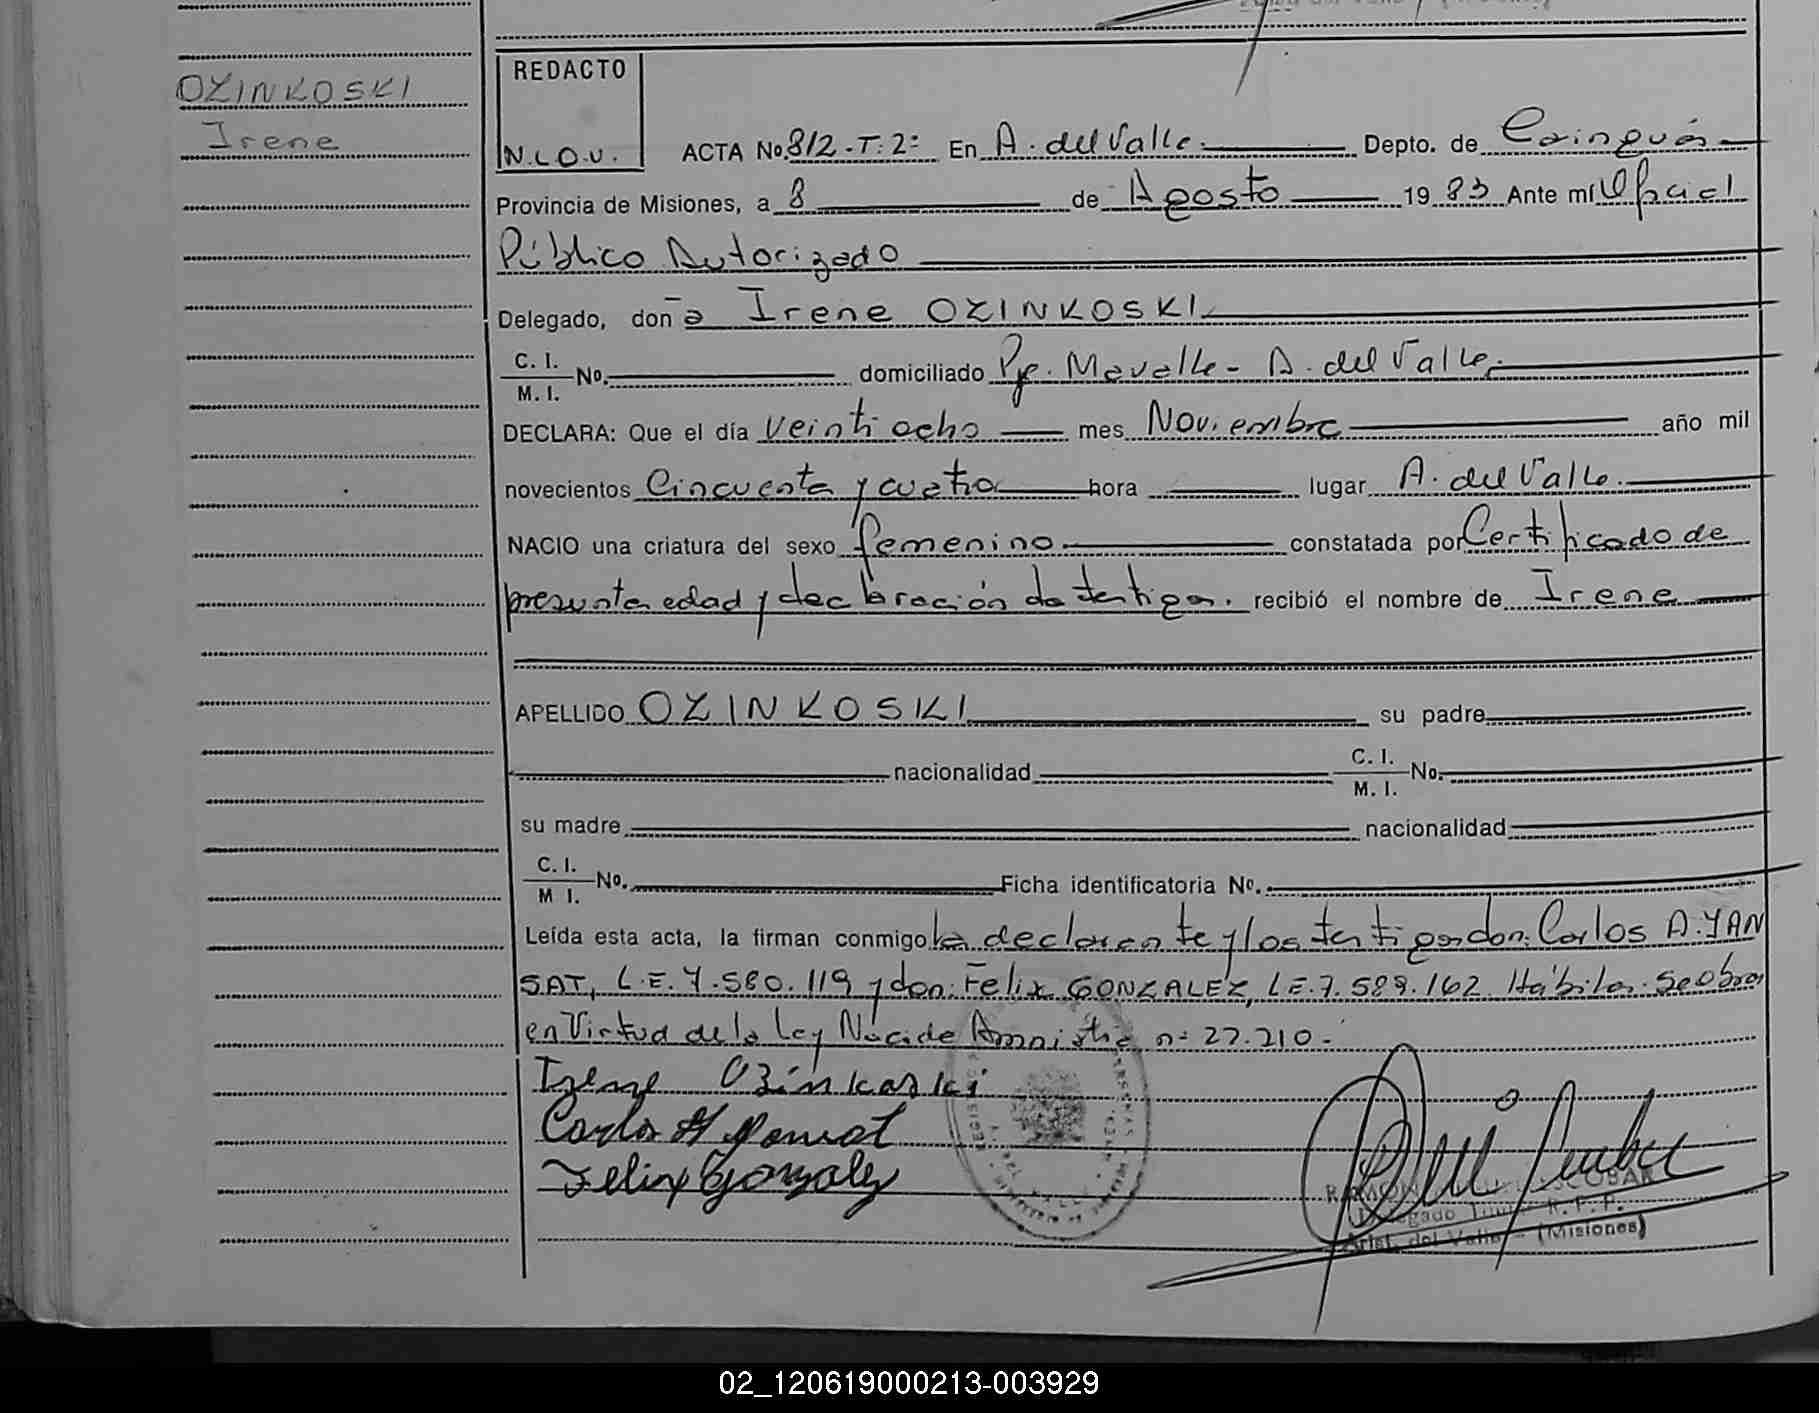 OZINKOSKI
Irene
REDACTO
N.L.O.U.
ACTA No. 812.-T: 2º En A. del Valle. Depto. de Cainguás
Provincia de Misiones, a 8 de Agosto 1983 Ante mí Oficial
Público Autorizado
Delegado, doña Irene OZINKOSKI
C. I.
M. I. No. domiciliado Pje. Mavalle - A. del Valle.
DECLARA: Que el día veintiocho mes Noviembre año mil
novecientos Cincuenta y cuatro hora lugar A. del Valle.
NACIO una criatura del sexo femenino. constatada por Certificado de
presunta edad y declaración de testigos. recibió el nombre de Irene
APELLIDO OZINKOSKI su padre
nacionalidad C. I.
M. I. No.
su madre nacionalidad
C. I.
M I. No. Ficha identificatoria Nº.
Leída esta acta, la firman conmigo la declarante y los testigos don: Carlos A. YAN
SAT, L.E. 7.580.119 y don: Felix GONZALEZ, L.E. 7.589.162. Hábiles. Se obra
en Virtud de la Ley Nac. de Amnistía nº 22.210.-
Irene Ozinkoski
Carlos A Yansat
Felix Gonzalez
RAMON ESCOBAR
Delegado Titular R. P. P.
Arist. del Valle - (Misiones)
02_120619000213-003929